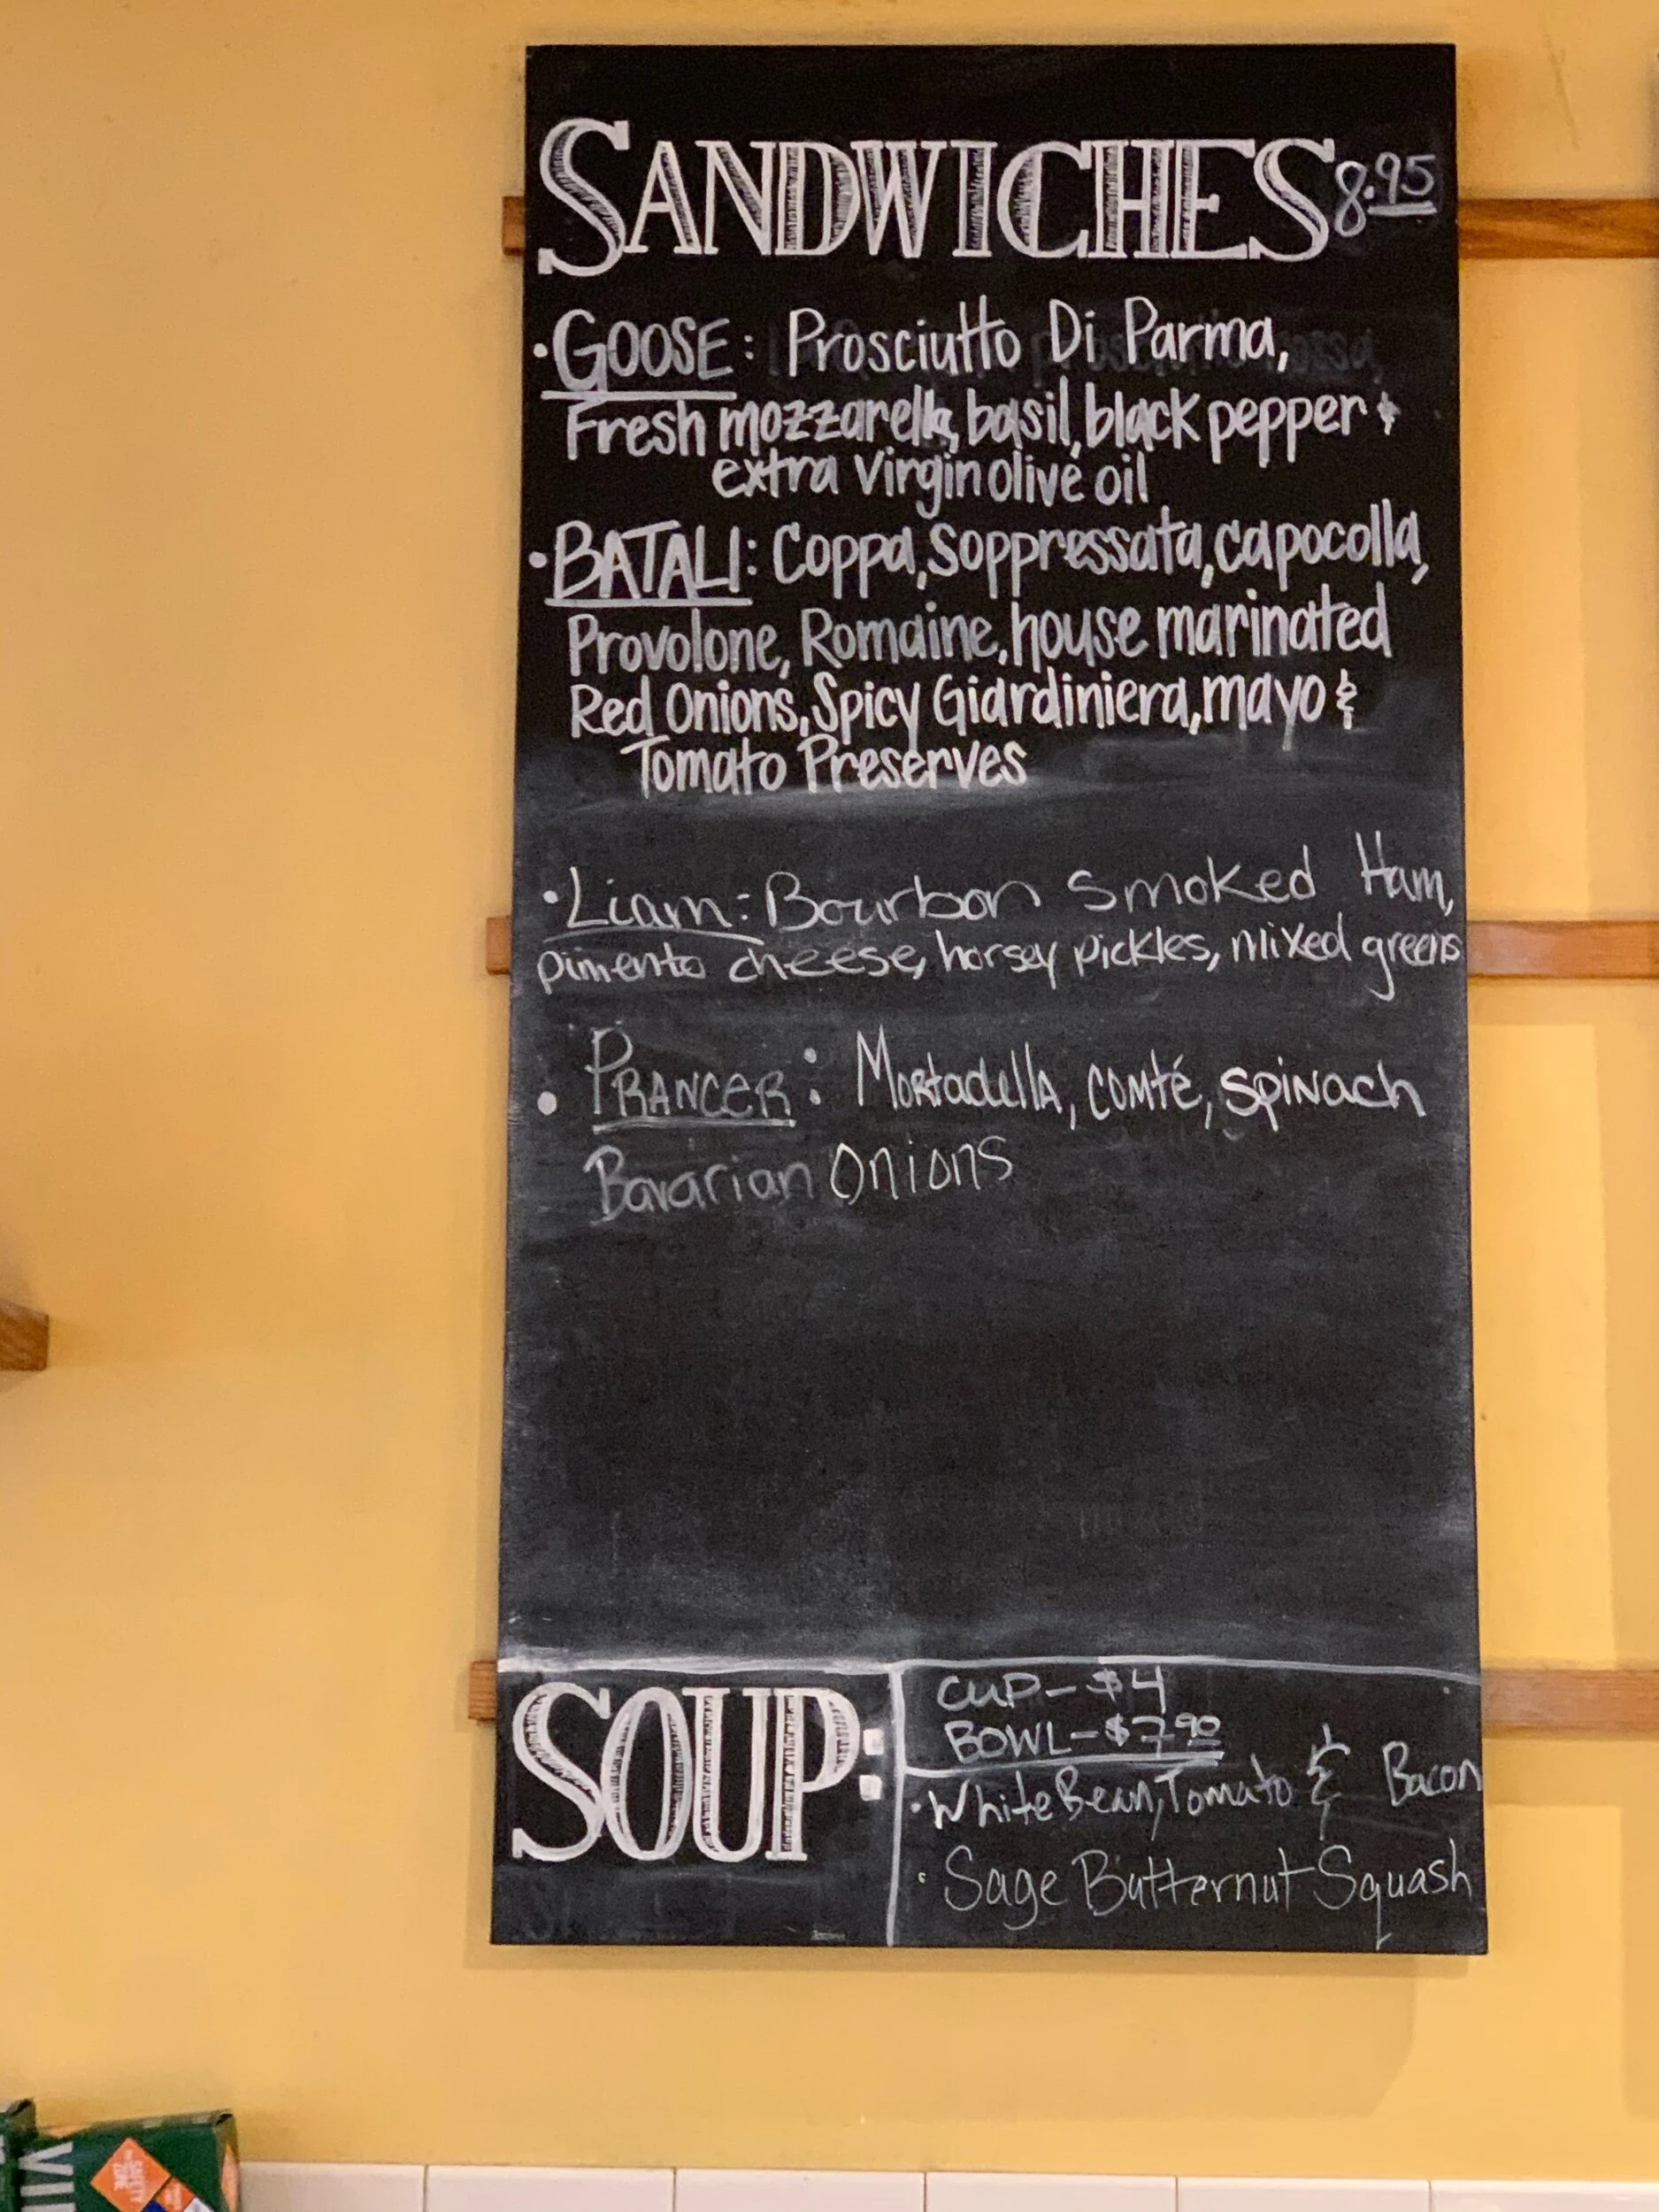 SANDWICHES 8.95
• GOOSE: Prosciutto Di Parma,
Fresh mozzarella, basil, black pepper &
extra virgin olive oil
• BATALI: Coppa, Soppressata, capocolla,
Provolone, Romaine, house marinated
Red Onions, Spicy Giardiniera, mayo &
Tomato Preserves
• Liam: Bourbon Smoked Ham,
pimento cheese, horsey pickles, mixed greens
• PRANCER: Mortadella, comté, spinach
Bavarian Onions
SOUP:
CUP - $4
BOWL - $7.90
• White Bean, Tomato & Bacon
• Sage Butternut Squash